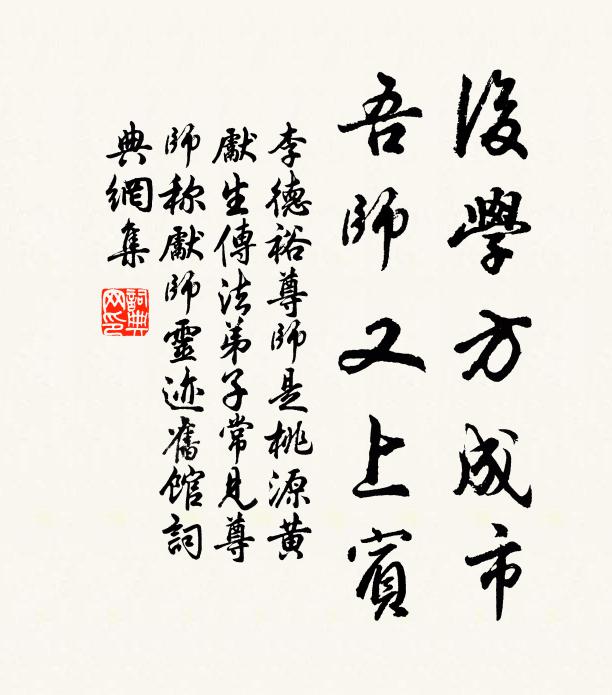 後學方成市
吾師又上賓
李德裕尊師是桃源黃
獻生傳法弟子常見尊
師称獻師靈迹舊館詞
典網集
詞典
网印